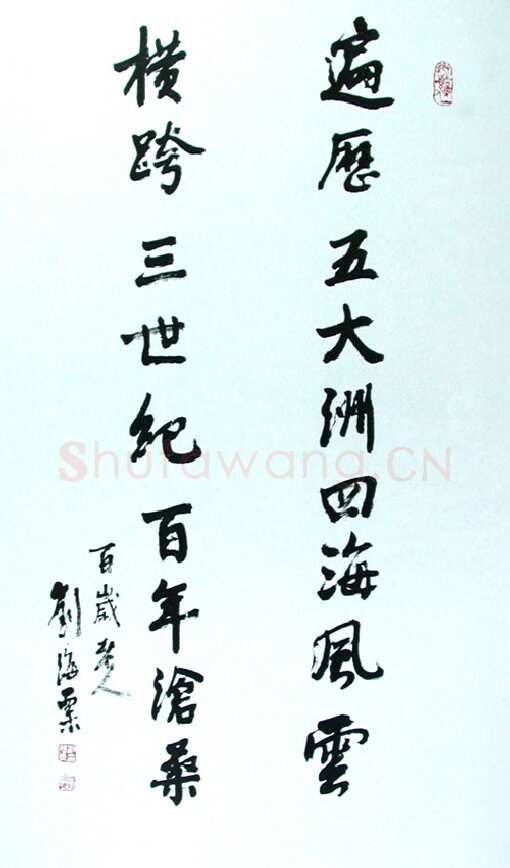 遍歷五大洲四海風雲
橫跨三世紀百年滄桑
百歲老人
劉海粟
Shufawang.CN